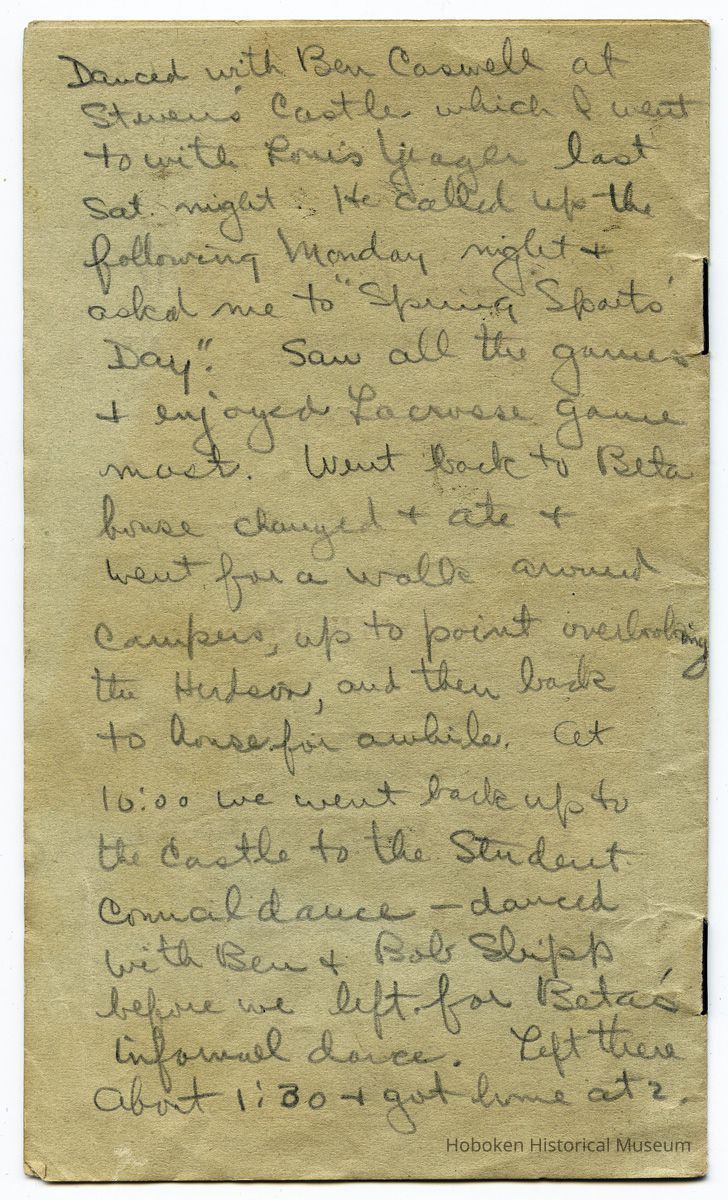 Danced with Ben Caswell at
Stevens' Castle which I went
to with Louis Yeager last
Sat. night. He called up the
following Monday night +
asked me to "Spring Sports
Day". Saw all the games
+ enjoyed Lacrosse game
most. Went back to Beta
house changed + ate +
went for a walk around
campus, up to point overlooking
the Hudson, and then back
to house for awhile. At
10:00 we went back up to
the Castle to the Student
Council dance - danced
with Ben + Bob Shipp
before we left for Beta's
informal dance. Left there
about 1:30 + got home at 2.
Hoboken Historical Museum